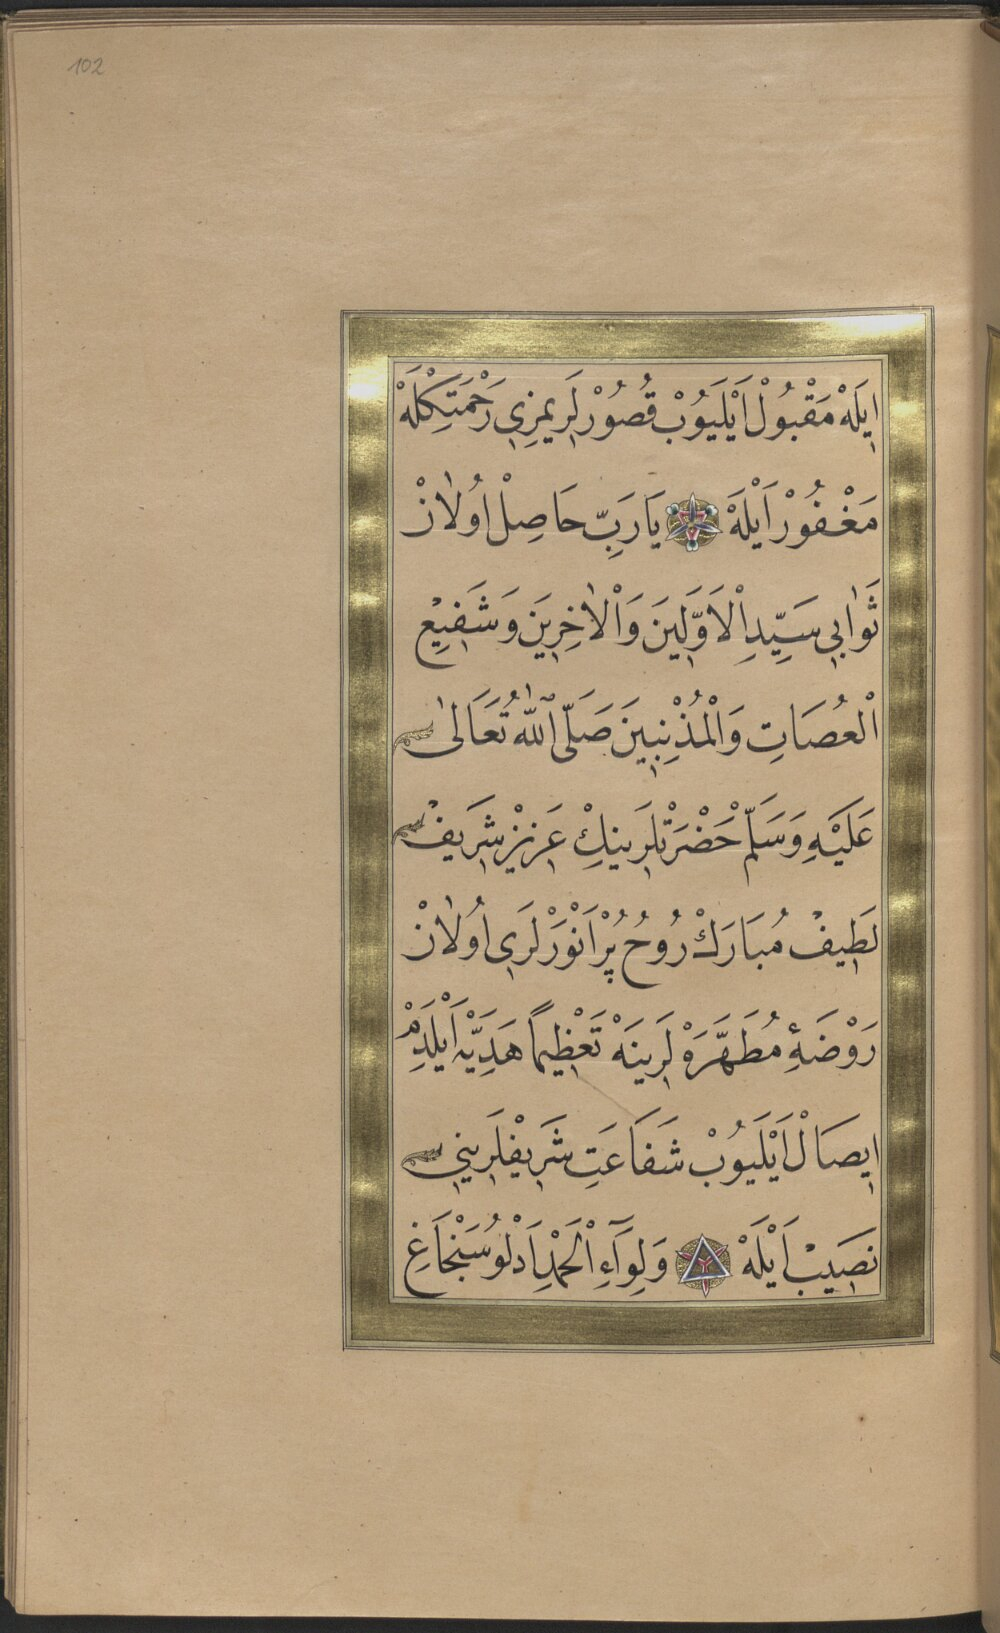 102
اِيلَهْ مَقْبُولْ اَيْلَيُوبْ قُصُورْلَرِيمِزِي رَحْمَتِكْلَهْ
مَغْفُورْ اَيْلَهْ يَا رَبِّ حَاصِلْ اُولَانْ
ثَوَابِي سَيِّدِ الْاَوَّلِينَ وَالْاٰخِرِينَ وَشَفِيعِ
الْعُصَاتِ وَالْمُذْنِبِينَ صَلَّى اللّٰهُ تَعَالٰى
عَلَيْهِ وَسَلَّمْ حَضْرَتْلَرِينِكْ عَزِيزْ شَرِيفْ
لَطِيفْ مُبَارَكْ رُوحُ پُرْ اَنْوَرْلَرِي اُولَانْ
رَوْضَهِٔ مُطَهَّرَهْ لَرِينَهْ تَعْظِيمًا هَدِيَّهْ اَيْلَدِمْ
اِيصَالْ اَيْلَيُوبْ شَفَاعَتِ شَرِيفْلَرِينِي
نَصِيبْ اَيْلَهْ وَلِوَآءِ الْحَمْدِ اَدْلُو سَنْجَاغِ